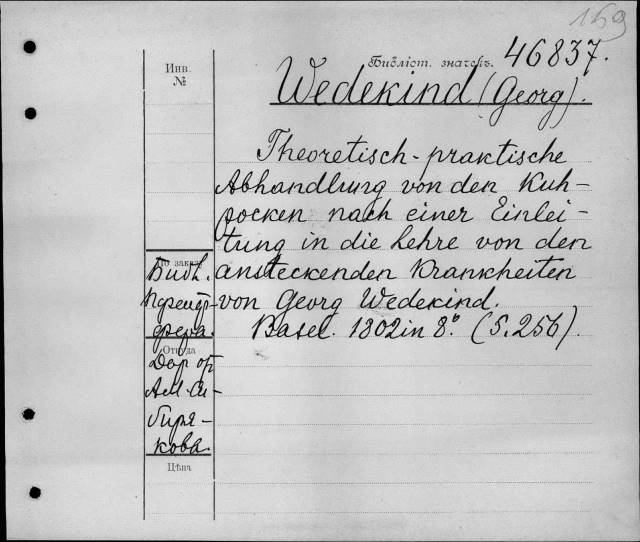 159
Библіот. значекъ. 46837.
Инв.
№
Wedekind (Georg).
Theoretisch-praktische
Abhandlung von den Kuh-
pocken nach einer Einlei-
tung in die Lehre von den
ansteckenden Krankheiten
von Georg Wedekind.
Basel. 1802 in 8º. (S. 256).
По заказу
Библ.
Откуда
Дар от
Ал. Си-
биря-
кова.
Цѣна